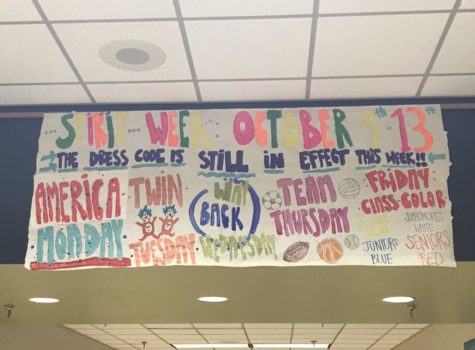 SPIRIT WEEK: OCTOBER 9th-13th
THE DRESS CODE IS STILL IN EFFECT THIS WEEK!!
AMERICA
MONDAY
TWIN
TUESDAY
(WAY
BACK)
WEDNESDAY
TEAM
THURSDAY
FRIDAY
CLASS COLOR
SOPHOMORES
WHITE
JUNIORS
BLUE
SENIORS
RED